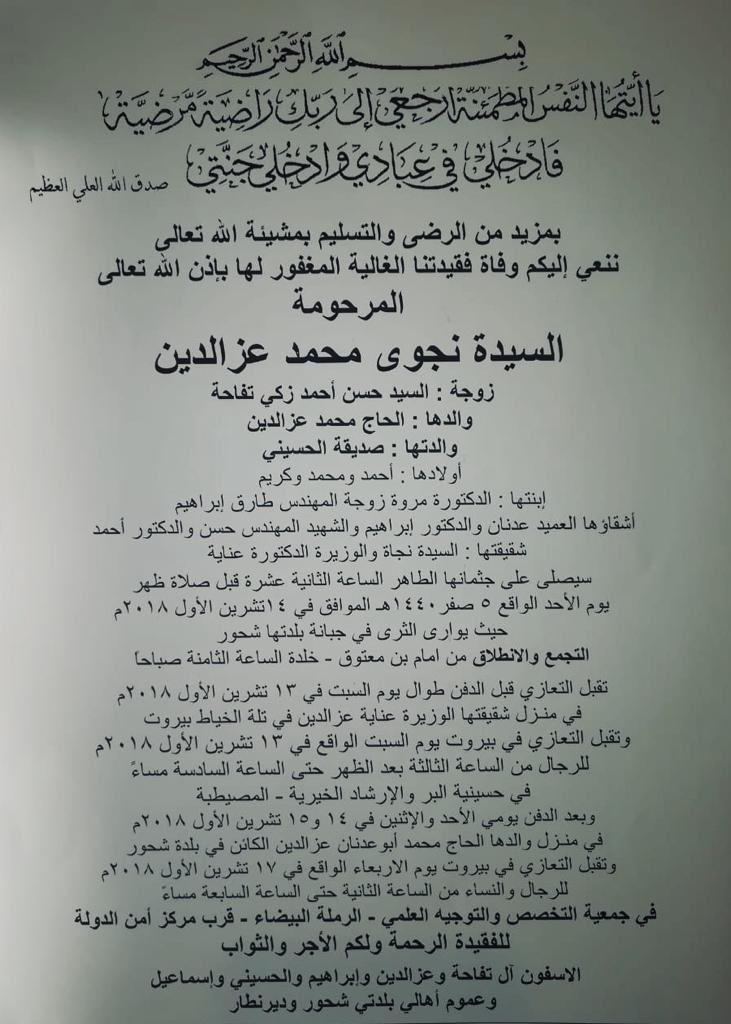 بسم الله الرحمن الرحيم
يا أيتها النفس المطمئنة ارجعي إلى ربك راضية مرضية
فادخلي في عبادي وادخلي جنتي
صدق الله العلي العظيم
بمزيد من الرضى والتسليم بمشيئة الله تعالى
ننعي إليكم وفاة فقيدتنا الغالية المغفور لها بإذن الله تعالى
المرحومة
السيدة نجوى محمد عزالدين
زوجة : السيد حسن أحمد زكي تفاحة
والدها : الحاج محمد عزالدين
والدتها : صديقة الحسيني
أولادها : أحمد ومحمد وكريم
إبنتها : الدكتورة مروة زوجة المهندس طارق إبراهيم
أشقاؤها العميد عدنان والدكتور إبراهيم والشهيد المهندس حسن والدكتور أحمد
شقيقتها : السيدة نجاة والوزيرة الدكتورة عناية
سيصلى على جثمانها الطاهر الساعة الثانية عشرة قبل صلاة ظهر
يوم الأحد الواقع ٥ صفر ١٤٤٠هـ الموافق في ١٤تشرين الأول ٢٠١٨م
حيث يوارى الثرى في جبانة بلدتها شحور
التجمع والانطلاق من امام بن معتوق - خلدة الساعة الثامنة صباحاً
تقبل التعازي قبل الدفن طوال يوم السبت في ١٣ تشرين الأول ٢٠١٨م
في منزل شقيقتها الوزيرة عناية عزالدين في تلة الخياط بيروت
وتقبل التعازي في بيروت يوم السبت الواقع في ١٣ تشرين الأول ٢٠١٨م
للرجال من الساعة الثالثة بعد الظهر حتى الساعة السادسة مساءً
في حسينية البر والإرشاد الخيرية - المصيطبة
وبعد الدفن يومي الأحد والإثنين في ١٤ و١٥ تشرين الأول ٢٠١٨م
في منزل والدها الحاج محمد أبوعدنان عزالدين الكائن في بلدة شحور
وتقبل التعازي في بيروت يوم الاربعاء الواقع في ١٧ تشرين الأول ٢٠١٨م
للرجال والنساء من الساعة الثانية حتى الساعة السابعة مساءً
في جمعية التخصص والتوجيه العلمي - الرملة البيضاء - قرب مركز أمن الدولة
للفقيدة الرحمة ولكم الأجر والثواب
الاسفون آل تفاحة وعزالدين وإبراهيم والحسيني وإسماعيل
وعموم أهالي بلدتي شحور وديرنطار